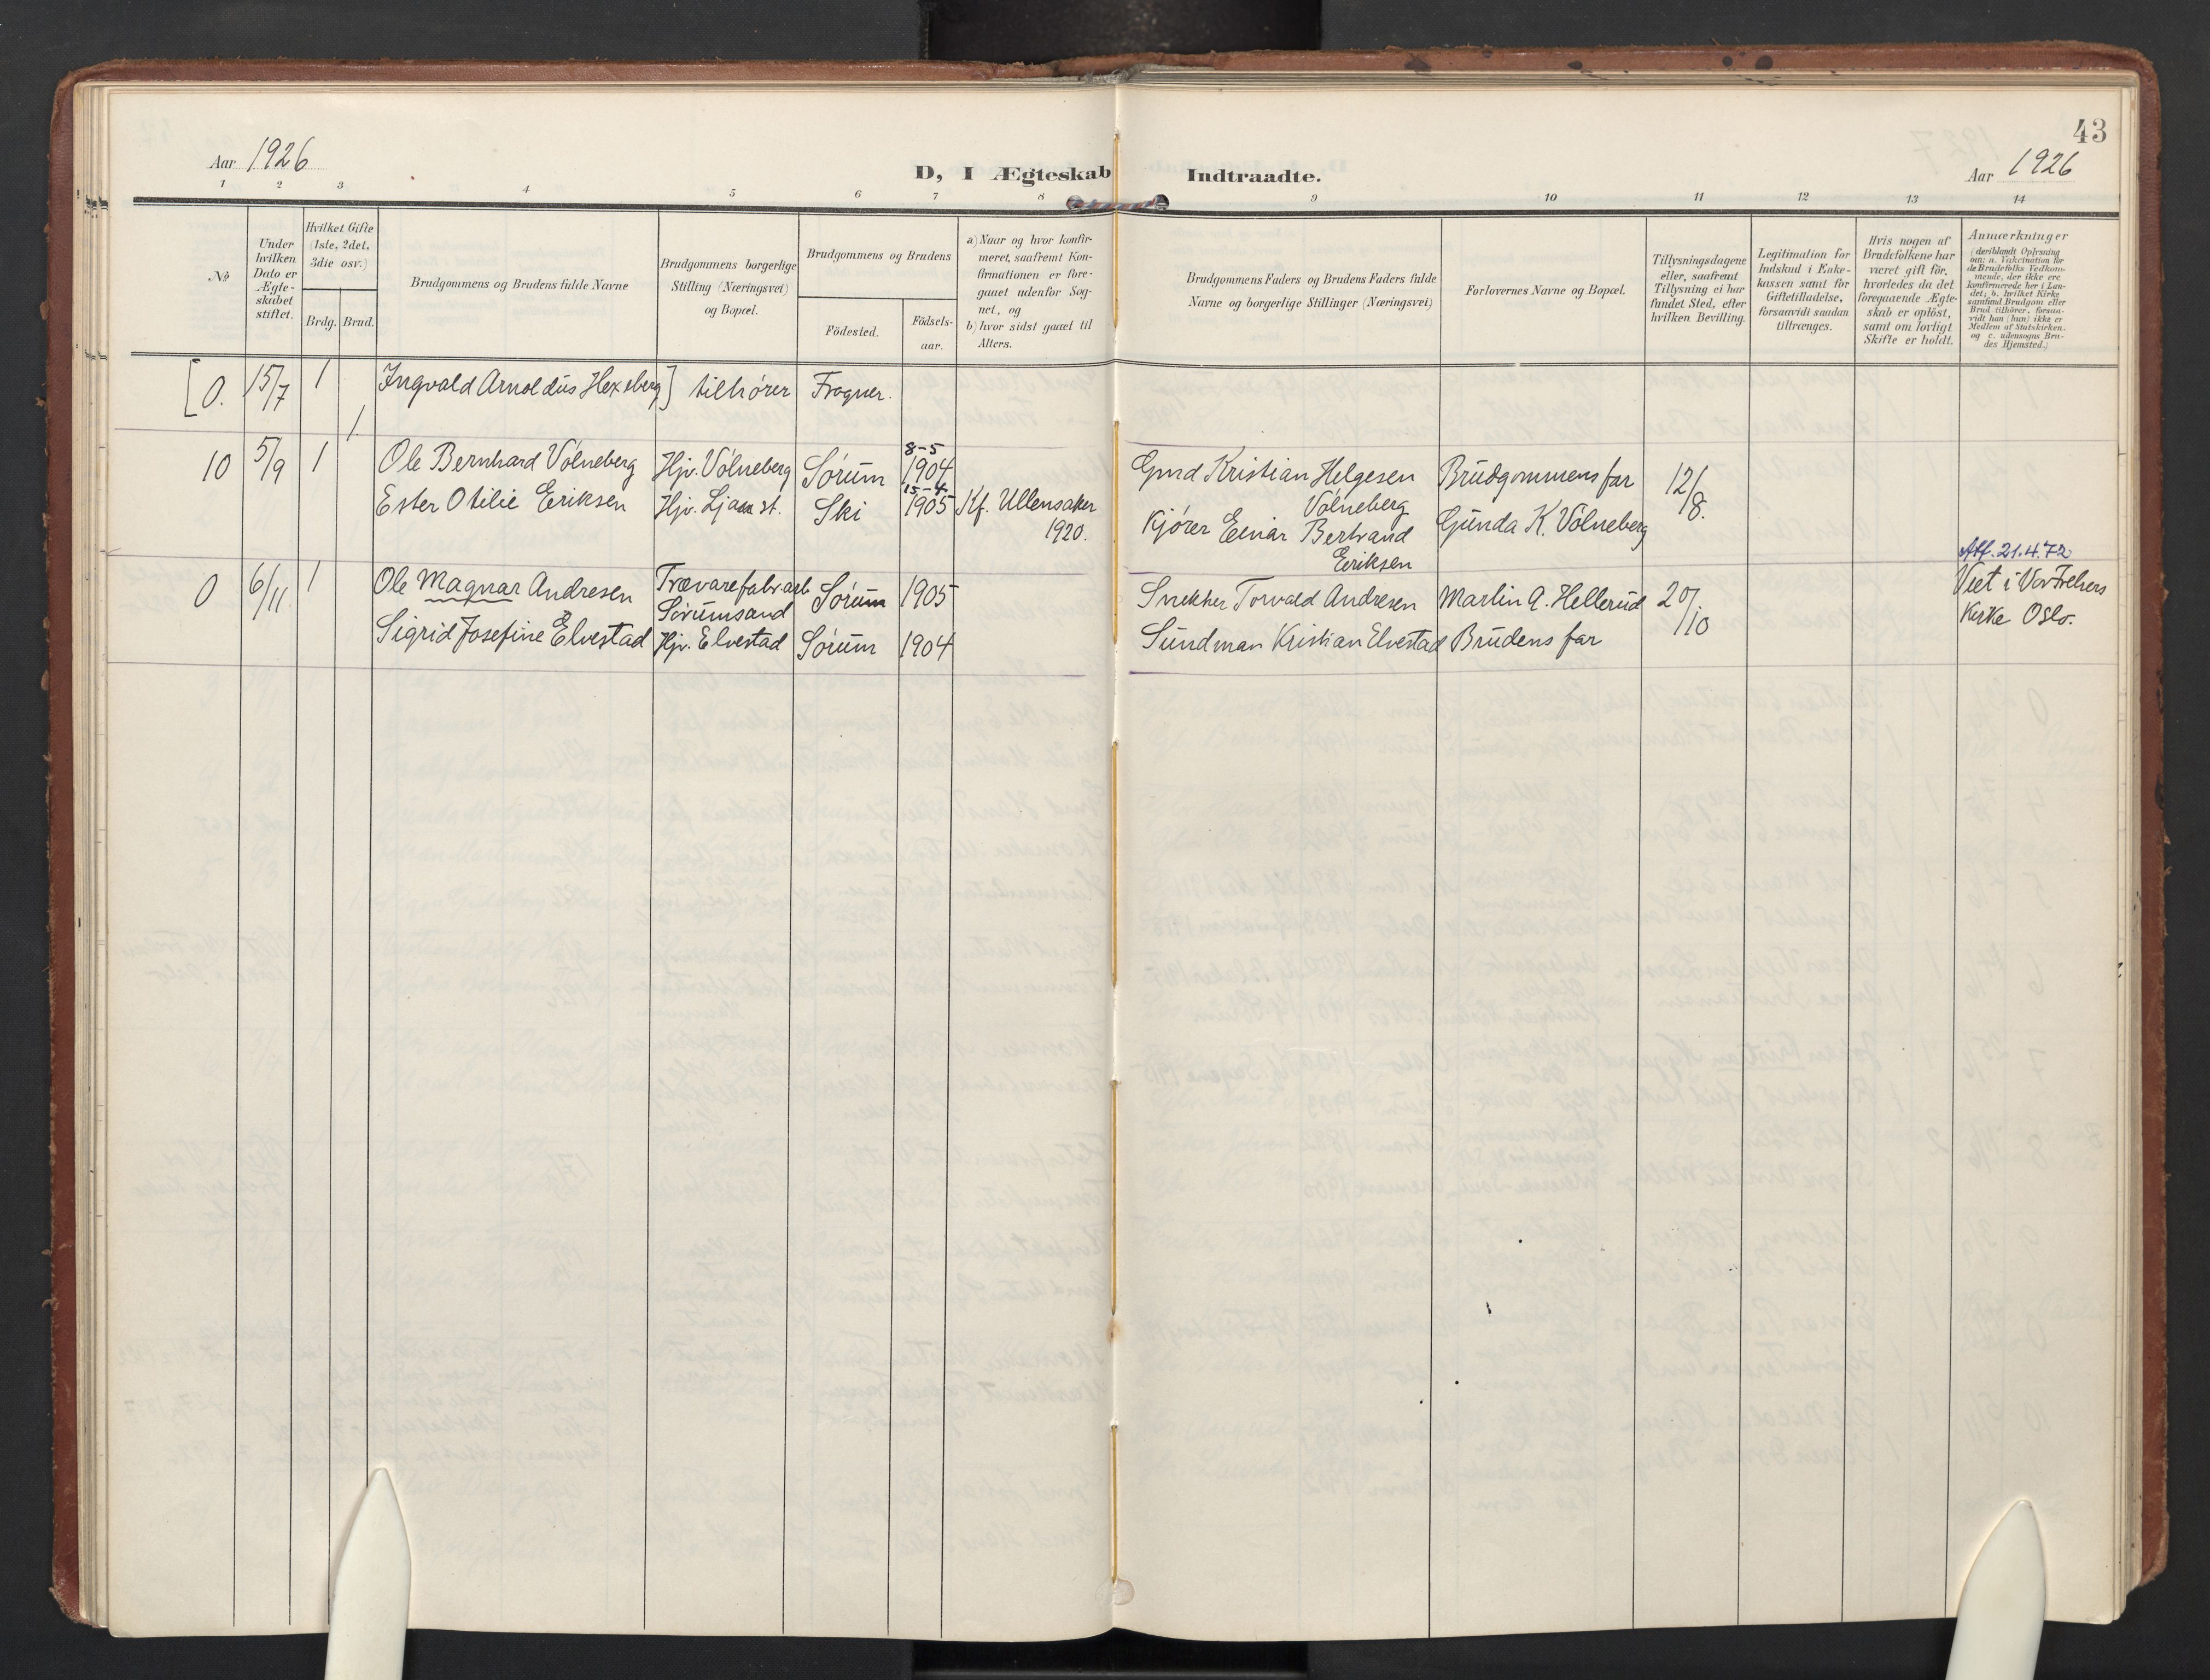 43
Aar 1926
D, I Ægteskab Indtraadte.
Aar 1926
1 2 3 4 5 6 7 8 9 10 11 12 13 14
No
Under
hvilken
Dato er
Ægte-
skabet
stiftet.
Hvilket Gifte
(1ste, 2det,
3die osv.)
Brdg. Brud.
Brudgommens og Brudens fulde Navne
Brudgommens borgerlige
Stilling (Næringsvei)
og Bopæl.
Brudgommens og Brudens
Födested.
Födsels-
aar.
a) Naar og hvor konfir-
meret, saafremt Kon-
firmationen er fore-
gaaet udenfor Sog-
net, og
b) hvor sidst gaaet til
Alters.
Brudgommens Faders og Brudens Faders fulde
Navne og borgerlige Stillinger (Næringsvei)
Forlovernes Navne og Bopæl.
Tillysningsdagene
eller, saafremt
Tillysning ei har
fundet Sted, efter
hvilken Bevilling.
Legitimation for
Indskud i Enke-
kassen samt for
Giftetilladelse,
forsaavidt saadan
tiltrænges.
Hvis nogen af
Brudefolkene har
været gift för,
hvorledes da det
foregaaende Ægte-
skab er oplöst,
samt om lovligt
Skifte er holdt.
Anmærkninger
(deriblandt Oplysning
om: a. Vakcination for
de Brudefolks Vedkom-
mende, der ikke ere
konfirmerede her i Lan-
det; b. hvilket Kirke
samfund Brudgom eller
Brud tilhörer, forsaa-
vidt han (hun) ikke er
Medlem af Statskirken.
og c. udensogns Bru-
des Hjemsted.)
[0. 15/7 1 Ingvald Arnoldus Hexeberg] tilhører Frogner.
1
10 5/9 1 Ole Bernhard Vølneberg Hjv. Vølneberg Sørum 8-5 1904 Gmd Kristian Helgesen Vølneberg Brudgommens far 12/8.
Ester Otilie Eriksen Hjv. Ljan st. Ski 15-4 1905 Kf. Ullensaker 1920. Kjører Einar Bertrand Eriksen Gunda K. Vølneberg
Att. 21.4.72
0 6/11 1 Ole Magnar Andresen Trævarefabr.arb Sørumsand Sørum 1905 Snekker Torvald Andresen Martin A. Hellerud 20/10 Viet i Vor Frelsers
Kirke Oslo.
Sigrid Josefine Elvestad Hjv. Elvestad Sørum 1904 Sundman Kristian Elvestad Brudens far